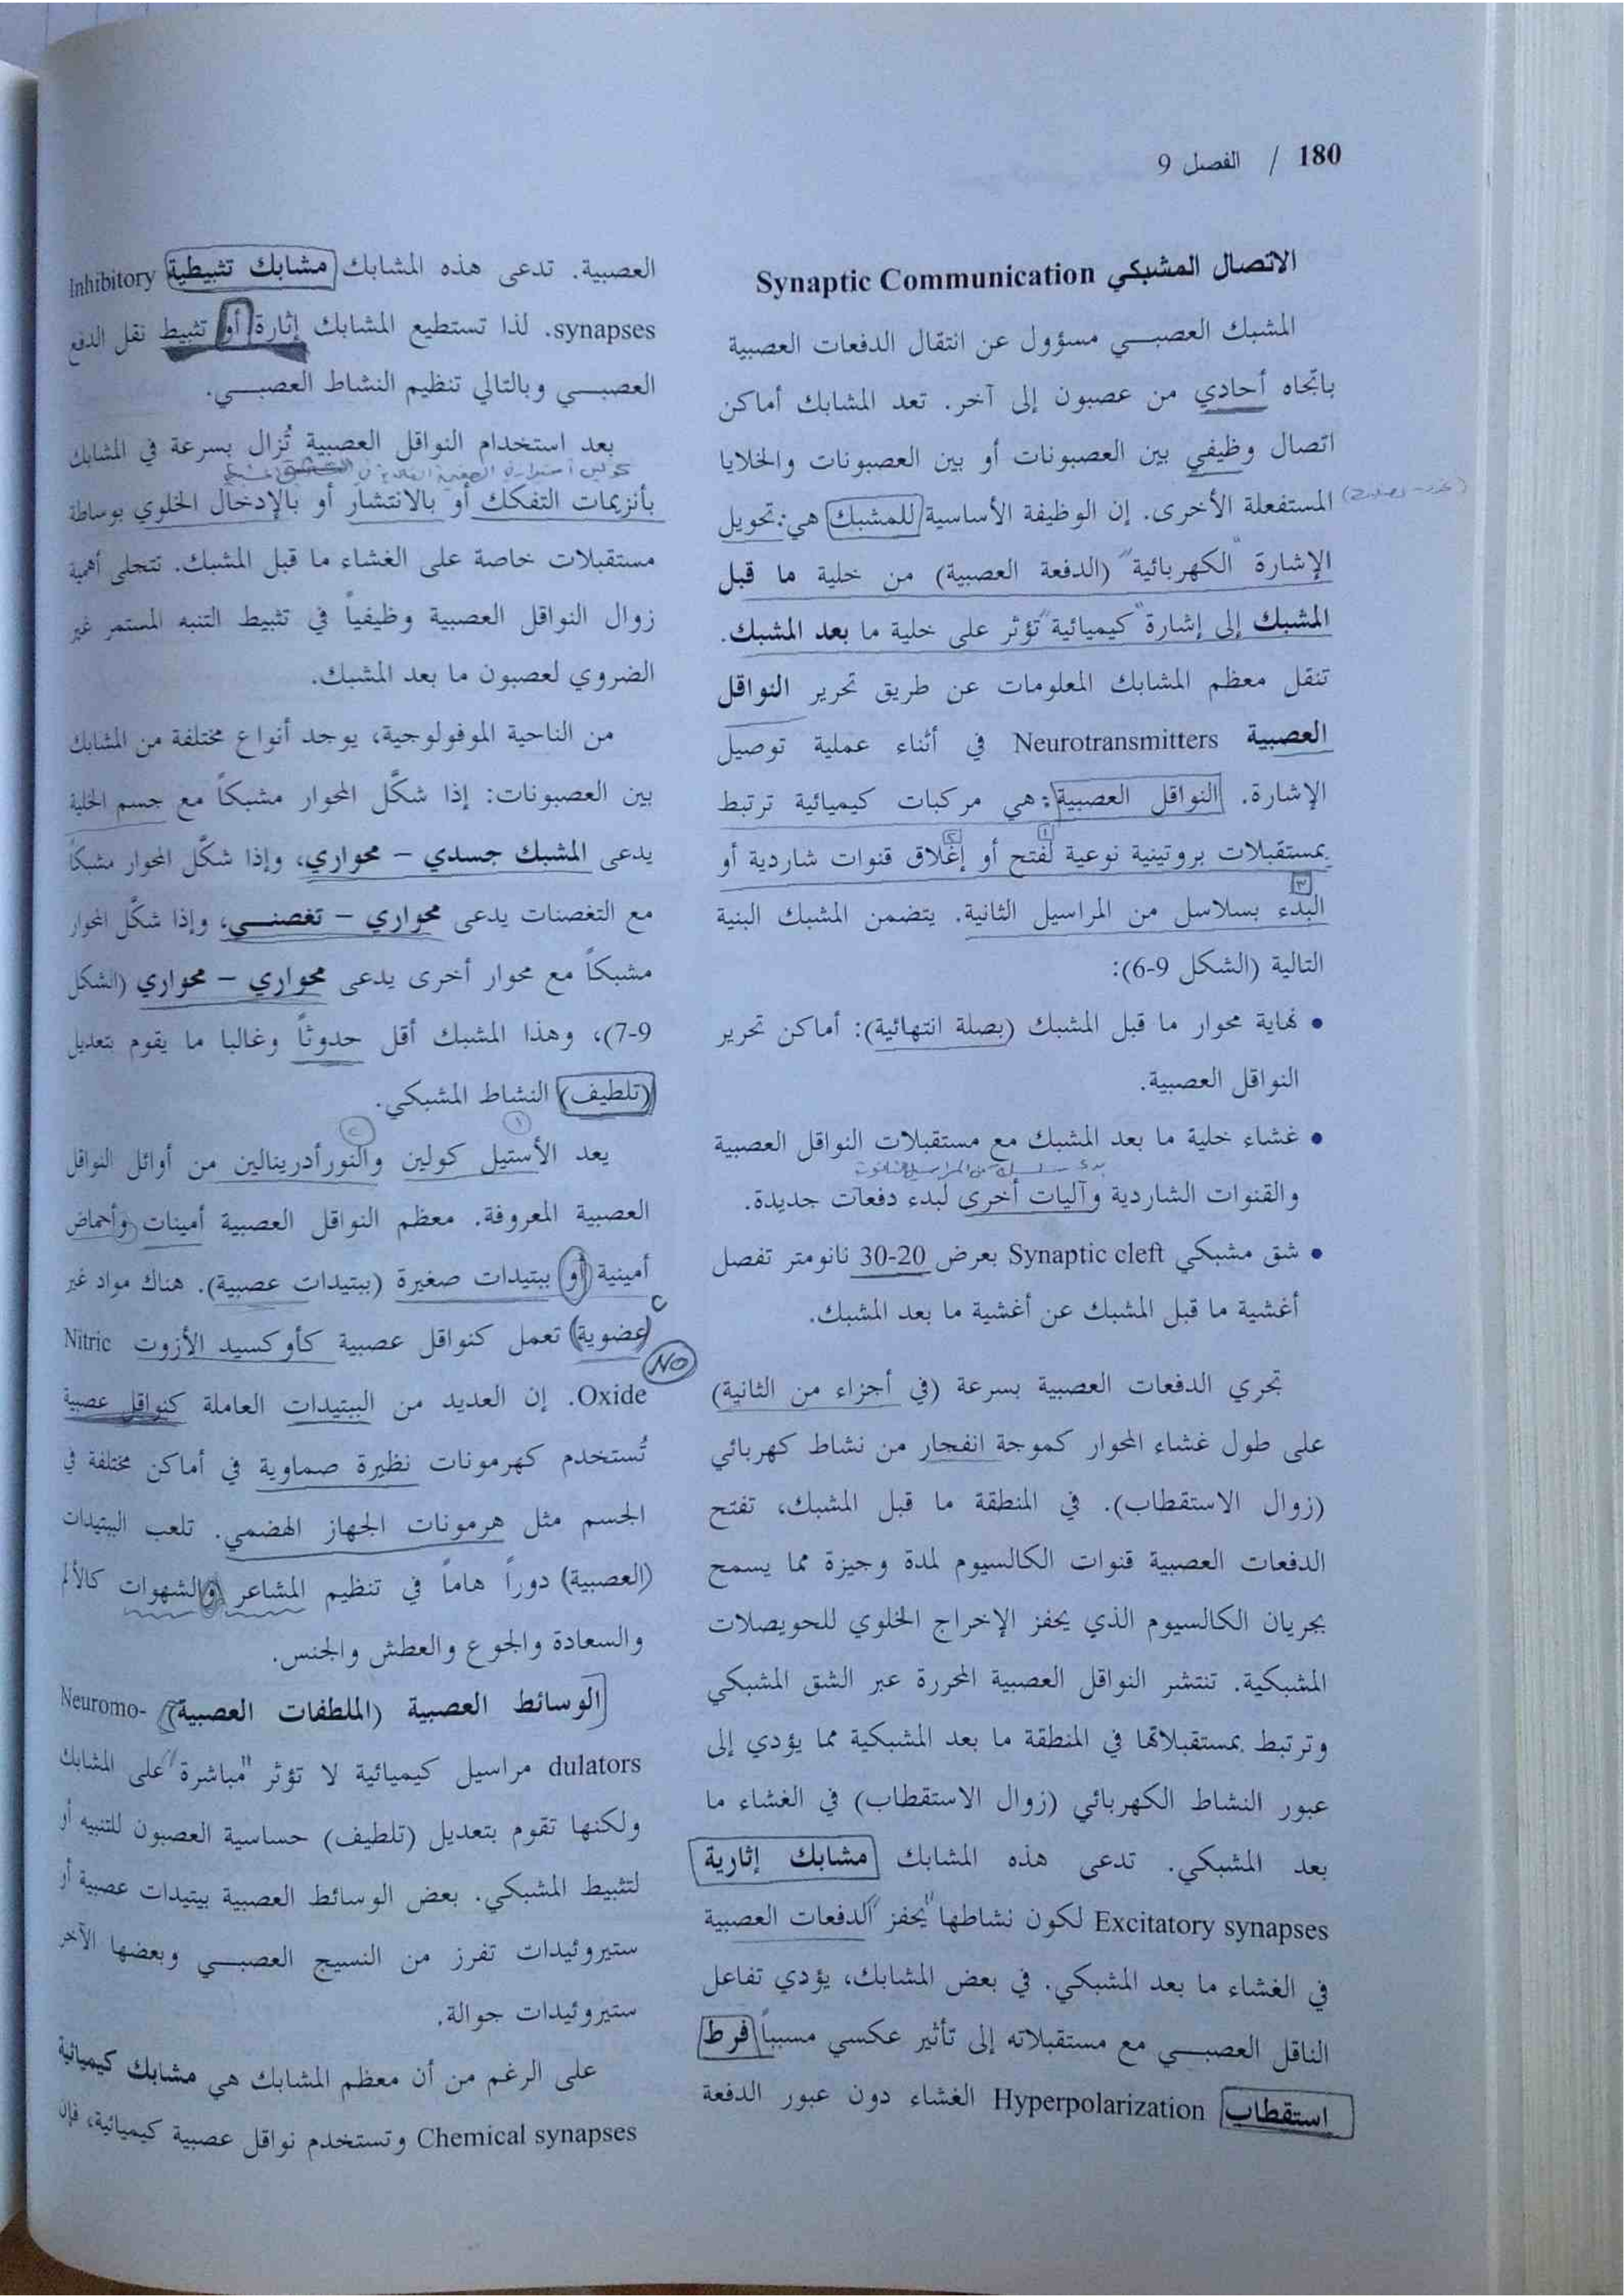 180 / الفصل 9
الاتصال المشبكي Synaptic Communication
المشبك العصبي مسؤول عن انتقال الدفعات العصبية
باتجاه أحادي من عصبون إلى آخر. تعد المشابك أماكن
اتصال وظيفي بين العصبونات أو بين العصبونات والخلايا
المستفعلة الأخرى. إن الوظيفة الأساسية للمشبك هي: تحويل
الإشارة "الكهربائية" (الدفعة العصبية) من خلية ما قبل
المشبك إلى إشارة "كيميائية" تؤثر على خلية ما بعد المشبك.
تنقل معظم المشابك المعلومات عن طريق تحرير النواقل
العصبية Neurotransmitters في أثناء عملية توصيل
الإشارة. النواقل العصبية: هي مركبات كيميائية ترتبط
بمستقبلات بروتينية نوعية لفتح أو إغلاق قنوات شاردية أو
البدء بسلاسل من المراسيل الثانية. يتضمن المشبك البنية
التالية (الشكل 9-6):
• نهاية محوار ما قبل المشبك (بصلة انتهائية): أماكن تحرير
النواقل العصبية.
• غشاء خلية ما بعد المشبك مع مستقبلات النواقل العصبية
والقنوات الشاردية وآليات أخرى لبدء دفعات جديدة.
• شق مشبكي Synaptic cleft بعرض 20-30 نانومتر تفصل
أغشية ما قبل المشبك عن أغشية ما بعد المشبك.
تجري الدفعات العصبية بسرعة (في أجزاء من الثانية)
على طول غشاء المحوار كموجة انفجار من نشاط كهربائي
(زوال الاستقطاب). في المنطقة ما قبل المشبك، تفتح
الدفعات العصبية قنوات الكالسيوم لمدة وجيزة مما يسمح
بجريان الكالسيوم الذي يحفز الإخراج الخلوي للحويصلات
المشبكية. تنتشر النواقل العصبية المحررة عبر الشق المشبكي
وترتبط بمستقبلاتها في المنطقة ما بعد المشبكية مما يؤدي إلى
عبور النشاط الكهربائي (زوال الاستقطاب) في الغشاء ما
بعد المشبكي. تدعى هذه المشابك مشابك إثارية
Excitatory synapses لكون نشاطها "يحفز" الدفعات العصبية
في الغشاء ما بعد المشبكي. في بعض المشابك، يؤدي تفاعل
الناقل العصبي مع مستقبلاته إلى تأثير عكسي مسبباً فرط
استقطاب Hyperpolarization الغشاء دون عبور الدفعة
العصبية. تدعى هذه المشابك مشابك تثبيطية Inhibitory
synapses. لذا تستطيع المشابك إثارة أو تثبيط نقل الدفع
العصبي وبالتالي تنظيم النشاط العصبي.
بعد استخدام النواقل العصبية تُزال بسرعة في المشابك
بأنزيمات التفكك أو بالانتشار أو بالإدخال الخلوي بوساطة
مستقبلات خاصة على الغشاء ما قبل المشبك. تتجلى أهمية
زوال النواقل العصبية وظيفياً في تثبيط التنبه المستمر غير
الضروري لعصبون ما بعد المشبك.
من الناحية الموفولوجية، يوجد أنواع مختلفة من المشابك
بين العصبونات: إذا شكَّل المحوار مشبكاً مع جسم الخلية
يدعى المشبك جسدي – محواري، وإذا شكَّل المحوار مشبكاً
مع التغصنات يدعى محواري – تغصني، وإذا شكَّل المحوار
مشبكاً مع محوار أخرى يدعى محواري – محواري (الشكل
9-7)، وهذا المشبك أقل حدوثاً وغالبا ما يقوم بتعديل
(تلطيف) النشاط المشبكي.
يعد الأستيل كولين والنورأدرينالين من أوائل النواقل
العصبية المعروفة. معظم النواقل العصبية أمينات وأحماض
أمينية أو ببتيدات صغيرة (ببتيدات عصبية). هناك مواد غير
عضوية تعمل كنواقل عصبية كأوكسيد الأزوت Nitric
NO
Oxide. إن العديد من الببتيدات العاملة كنواقل عصبية
تُستخدم كهرمونات نظيرة صماوية في أماكن مختلفة في
الجسم مثل هرمونات الجهاز الهضمي. تلعب الببتيدات
(العصبية) دوراً هاماً في تنظيم المشاعر والشهوات كالألم
والسعادة والجوع والعطش والجنس.
الوسائط العصبية (الملطفات العصبية) Neuromo-
dulators مراسيل كيميائية لا تؤثر "مباشرة" على المشابك
ولكنها تقوم بتعديل (تلطيف) حساسية العصبون للتنبيه أو
لتثبيط المشبكي. بعض الوسائط العصبية ببتيدات عصبية أو
ستيروئيدات تفرز من النسيج العصبي وبعضها الآخر
ستيروئيدات جوالة.
على الرغم من أن معظم المشابك هي مشابك كيميائية
Chemical synapses وتستخدم نواقل عصبية كيميائية، فإن